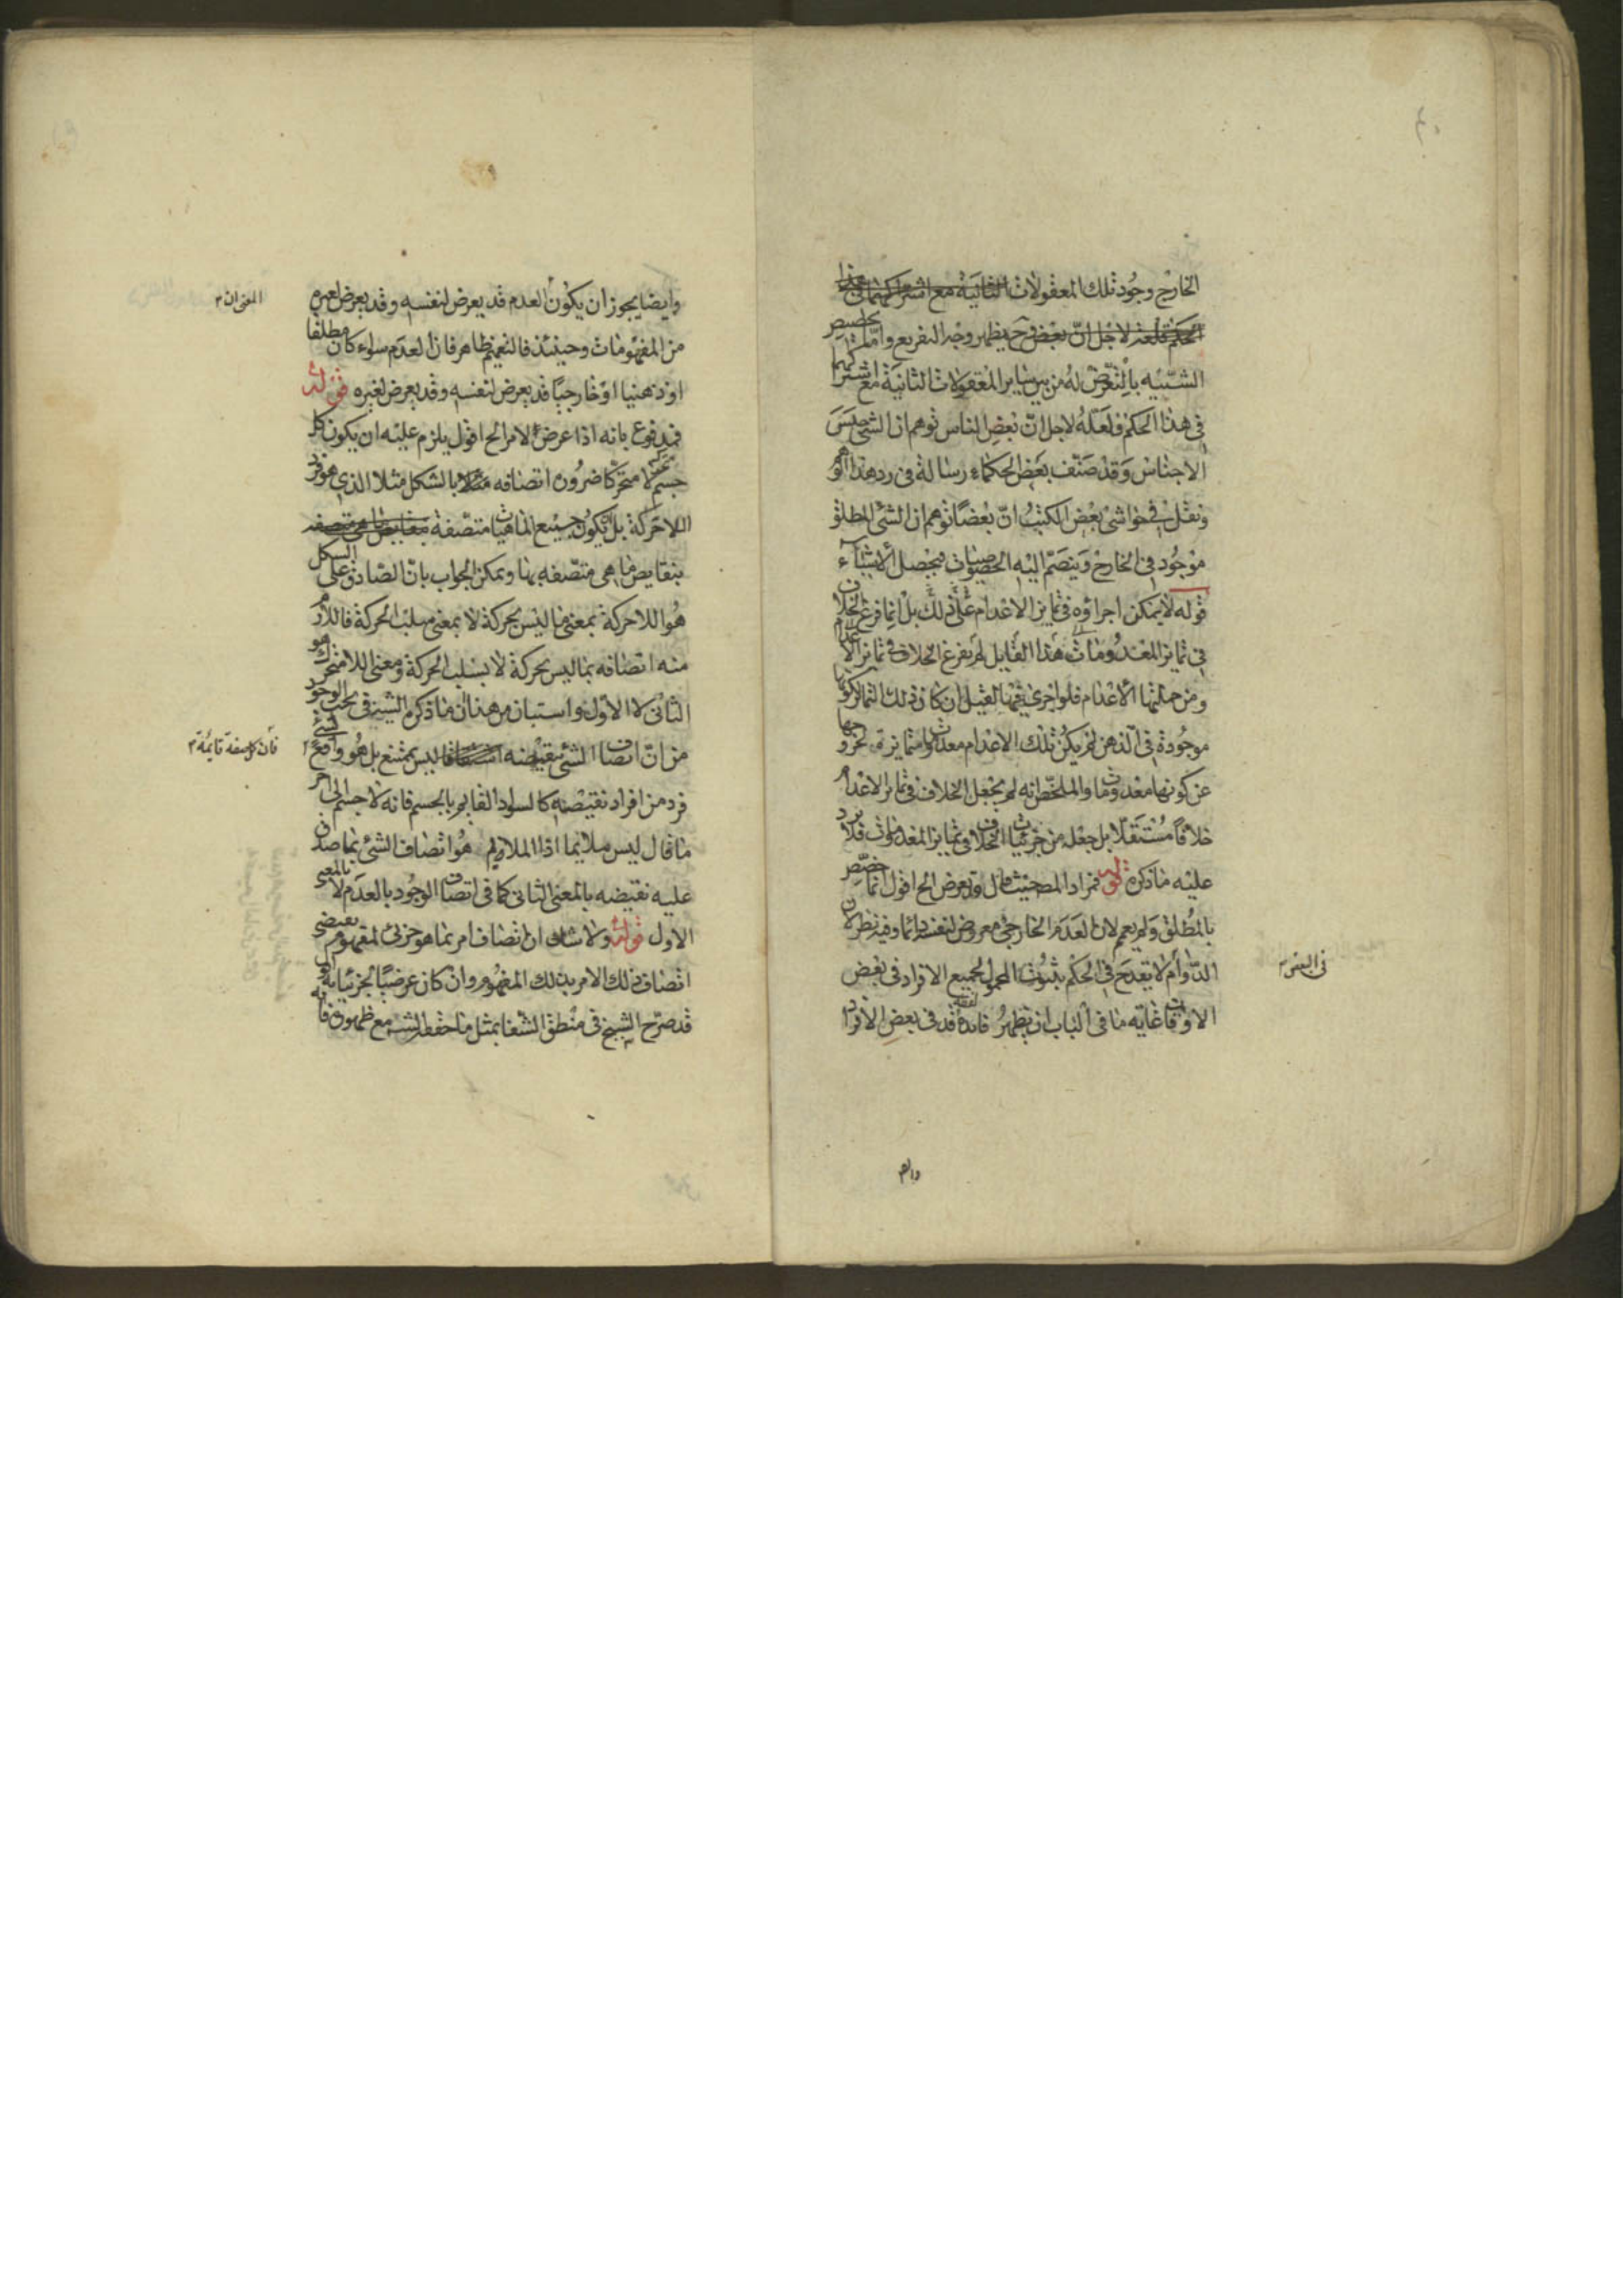 الخارج وجود تلك المعقولات الثانية مع اشتراكهما في هذا
الحكم فلعله لاجل ان بعض وح يظهر وجه التفريع واما تخصيص
الشيئية بالتعرض له من بين ساير المعقولات الثانية مع اشتراكهما
في هذا الحكم فلعله لاجل ان بعض الناس توهم ان الشيء جنس
الاجناس وقد صنف بعض الحكماء رسالة في رد هذا
ونقل في حواشي بعض الكتب ان بعضا توهم ان الشيء المطلق
موجود في الخارج وينضم اليه الخصوصيات فيحصل الاشياء
قوله لا يمكن اجراؤه في تمايز الاعدام على ذلك بل انما فرع الخلاف
في تمايز المعدومات هذا القايل لم يفرع الخلاف في تمايز الاعدام
ومن جملتها الاعدام فلو اجرى فيها لقيل ان كان ذلك التمايز لكونها
موجودة في الذهن لم يكن تلك الاعدام معدومات متمايزة لخروجها
عن كونها معدومات والملخص انه لم يجعل الخلاف في تمايز الاعدام
خلافا مستقلا بل جعله من جزئيات الخلاف في تمايز المعدومات فلا يرد
عليه ما ذكره قوله فمراد المص حيث قال وقد يعرض الخ اقول انما خصص
بالمطلق ولم يعمم لان العدم الخارجي معروض لنفسه دائما وفيه نظر لان
الدوام لا يقدح في الحكم بثبوت المحمول لجميع الافراد في بعض
الاوقات غاية ما في الباب ان يظهر فايدة لفظة قد في بعض الافراد
في البعض
وايضا
وايضا يجوز ان يكون العدم قد يعرض لنفسه وقد يعرض لغيره
من المفهومات وحينئذ فالتعميم ظاهر فان العدم سواء كان مطلقا
او ذهنيا او خارجيا قد يعرض لنفسه وقد يعرض لغيره قوله
فمدفوع بانه اذا عرض الامر الخ اقول يلزم عليه ان يكون كل
جسم متحرك لا متحركا ضرورة اتصافه بالشكل مثلا الذي هو فرد
اللاحركة بل يكون جميع الماهيات متصفة
بنقايض ما هي متصفة بها ويمكن الجواب بان الصادق على الشكل
هو اللاحركة بمعنى ما ليس بحركة لا بمعنى سلب الحركة فاللازم
منه اتصافه بما ليس بحركة لا بسلب الحركة ومعنى اللامتحرك هو
الثاني لا الاول واستبان من هذا ان ما ذكره الشيخ في بحث الوجود
من ان اتصاف الشيء بنقيضه ليس بممتنع بل هو واقع
فرد من افراد نقيضه كالسواد القايم بالجسم فانه لا جسم الى اخر
ما قال ليس ملايما اذ الملايم هو اتصاف الشيء بما صدق
عليه نقيضه بالمعنى الثاني كما في اتصاف الوجود بالعدم لا بالمعنى
الاول قوله ولا شك ان اتصاف امر بما هو جزئي لمفهوم يقتضي
اتصاف ذلك الامر بذلك المفهوم وان كان عرضيا لجزئياته
قد صرح الشيخ في منطق الشفا بمثل ما مع ظهوره فانه
المعنى ان
فان كل صفة قايمة